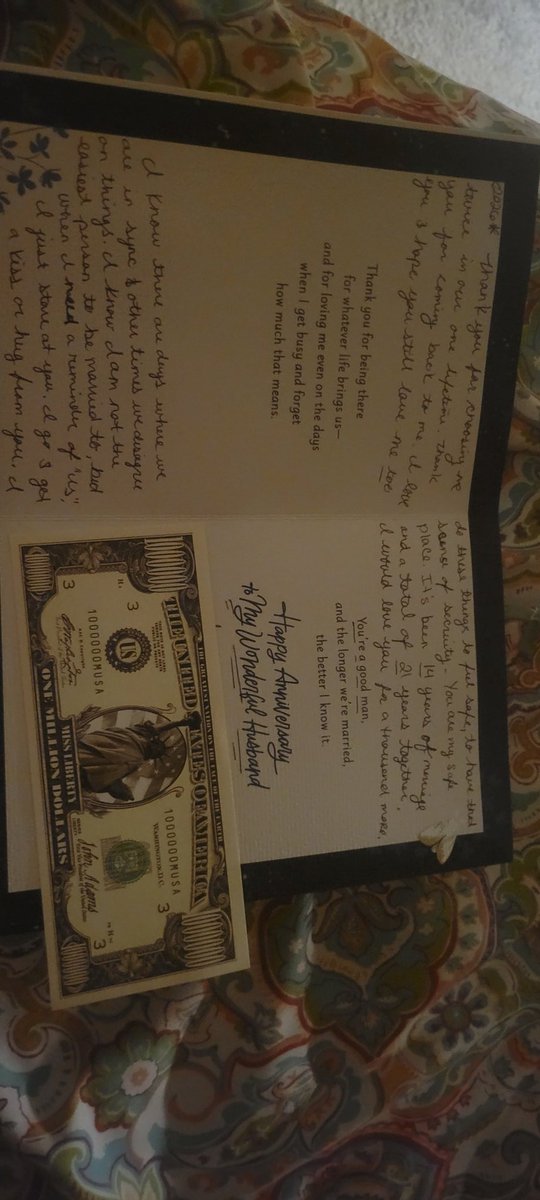 Thank you for choosing me
twice in our one lifetime. Thank
you for coming back to me. I love
you & hope you still love me too
Thank you for being there
for whatever life brings us—
and for loving me even on the days
when I get busy and forget
how much that means.
I know there are days where we
are in sync & other times we disagree
on things. I know I am not the
easiest person to be married to, but
when I need a reminder of "us,"
I just stare at you. I go & get
a kiss or hug from you. I
do these things to feel safe, to have that
sense of security. You are my safe
place. It's been 14 years of marriage
and a total of 21 years together.
I would love you for a thousand more.
You're a good man,
and the longer we're married,
the better I know it.
Happy Anniversary
to My Wonderful Husband
1000000
THE UNITED STATES OF AMERICA
1000000
3
1000000MUSA
US
1000000MUSA
WASHINGTON, D.C.
3
3
John Adams
3
1000000
MISS LIBERTY
ONE MILLION DOLLARS
1000000